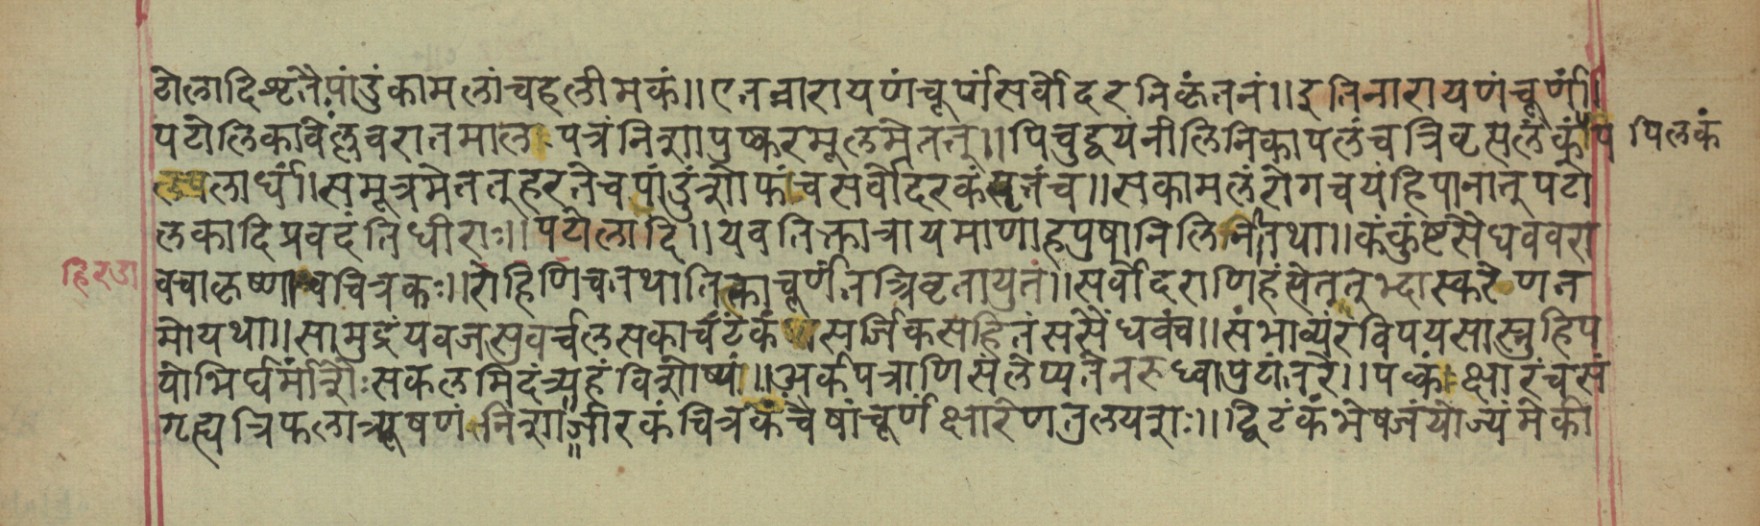 ठोलादिशृतैपांडुंकामलांचहलीमकं॥एतन्नारायणंचूर्णंसर्वोदरनिकृंतनं॥इतिनारायणंचूर्णं॥
पटोलिकावेल्लवरातमालपत्रंनिशापुष्करमूलमेतत्॥पिचुद्वयंनीलिनिकापलंचत्रिवृत्सलंकंपि पिलकं
लपलार्धं॥समूत्रमेतत्तुहरतेचपांडुंशोफंचसर्वोदरकंसृतंच॥सकामलंरोगचयंहिपानात्पटो
लकादिप्रवदंतिधीराः॥पटोलादि॥यवतिक्तात्रायमाणाहपुषानिलिनितथा॥कंकुंष्टंसैधववरा
हिरडा वचाकृष्णाचचित्रकः॥रोहिणिचतथातिक्ताचूर्णंतत्त्रिवृतायुतं॥सर्वोदराणिहंत्येतत्तुभ्दास्करेणत
मोयथा॥सामुद्रंयवजसुवर्चलसकाचंटंकंसर्जिकसहितंससैंधवंच॥संभाव्यंरविपयसास्नुहिप
योभिर्घर्मांशौःसकलमिदंत्र्यहंविशोष्यं॥अर्कपत्राणिसंलेप्यतेनरुध्वापुटांतरे॥पक्त्वाक्षारंचसं
गृह्यत्रिफलात्र्यूषणंनिशाजीरकंचित्रकंचैषांचूर्णंक्षारेणतुलयशः॥द्विटंकंभेषजंयोज्यंमेकी